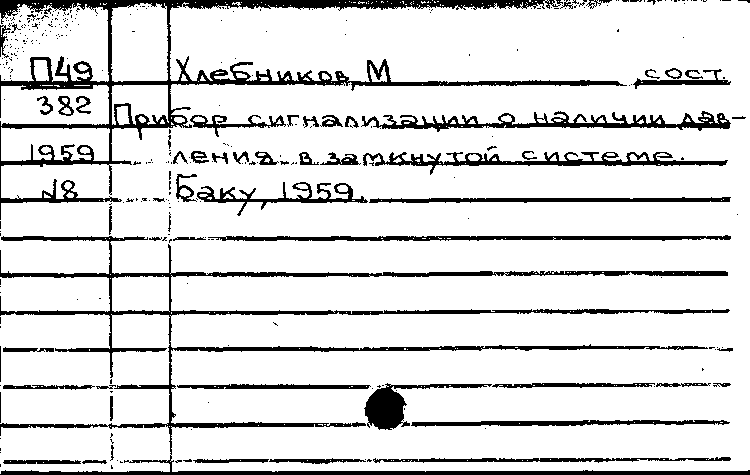 П49 Хлебников, М сост.
382 Прибор сигнализации о наличии дав-
1959 ления в замкнутой системе.
№8 Баку, 1959.